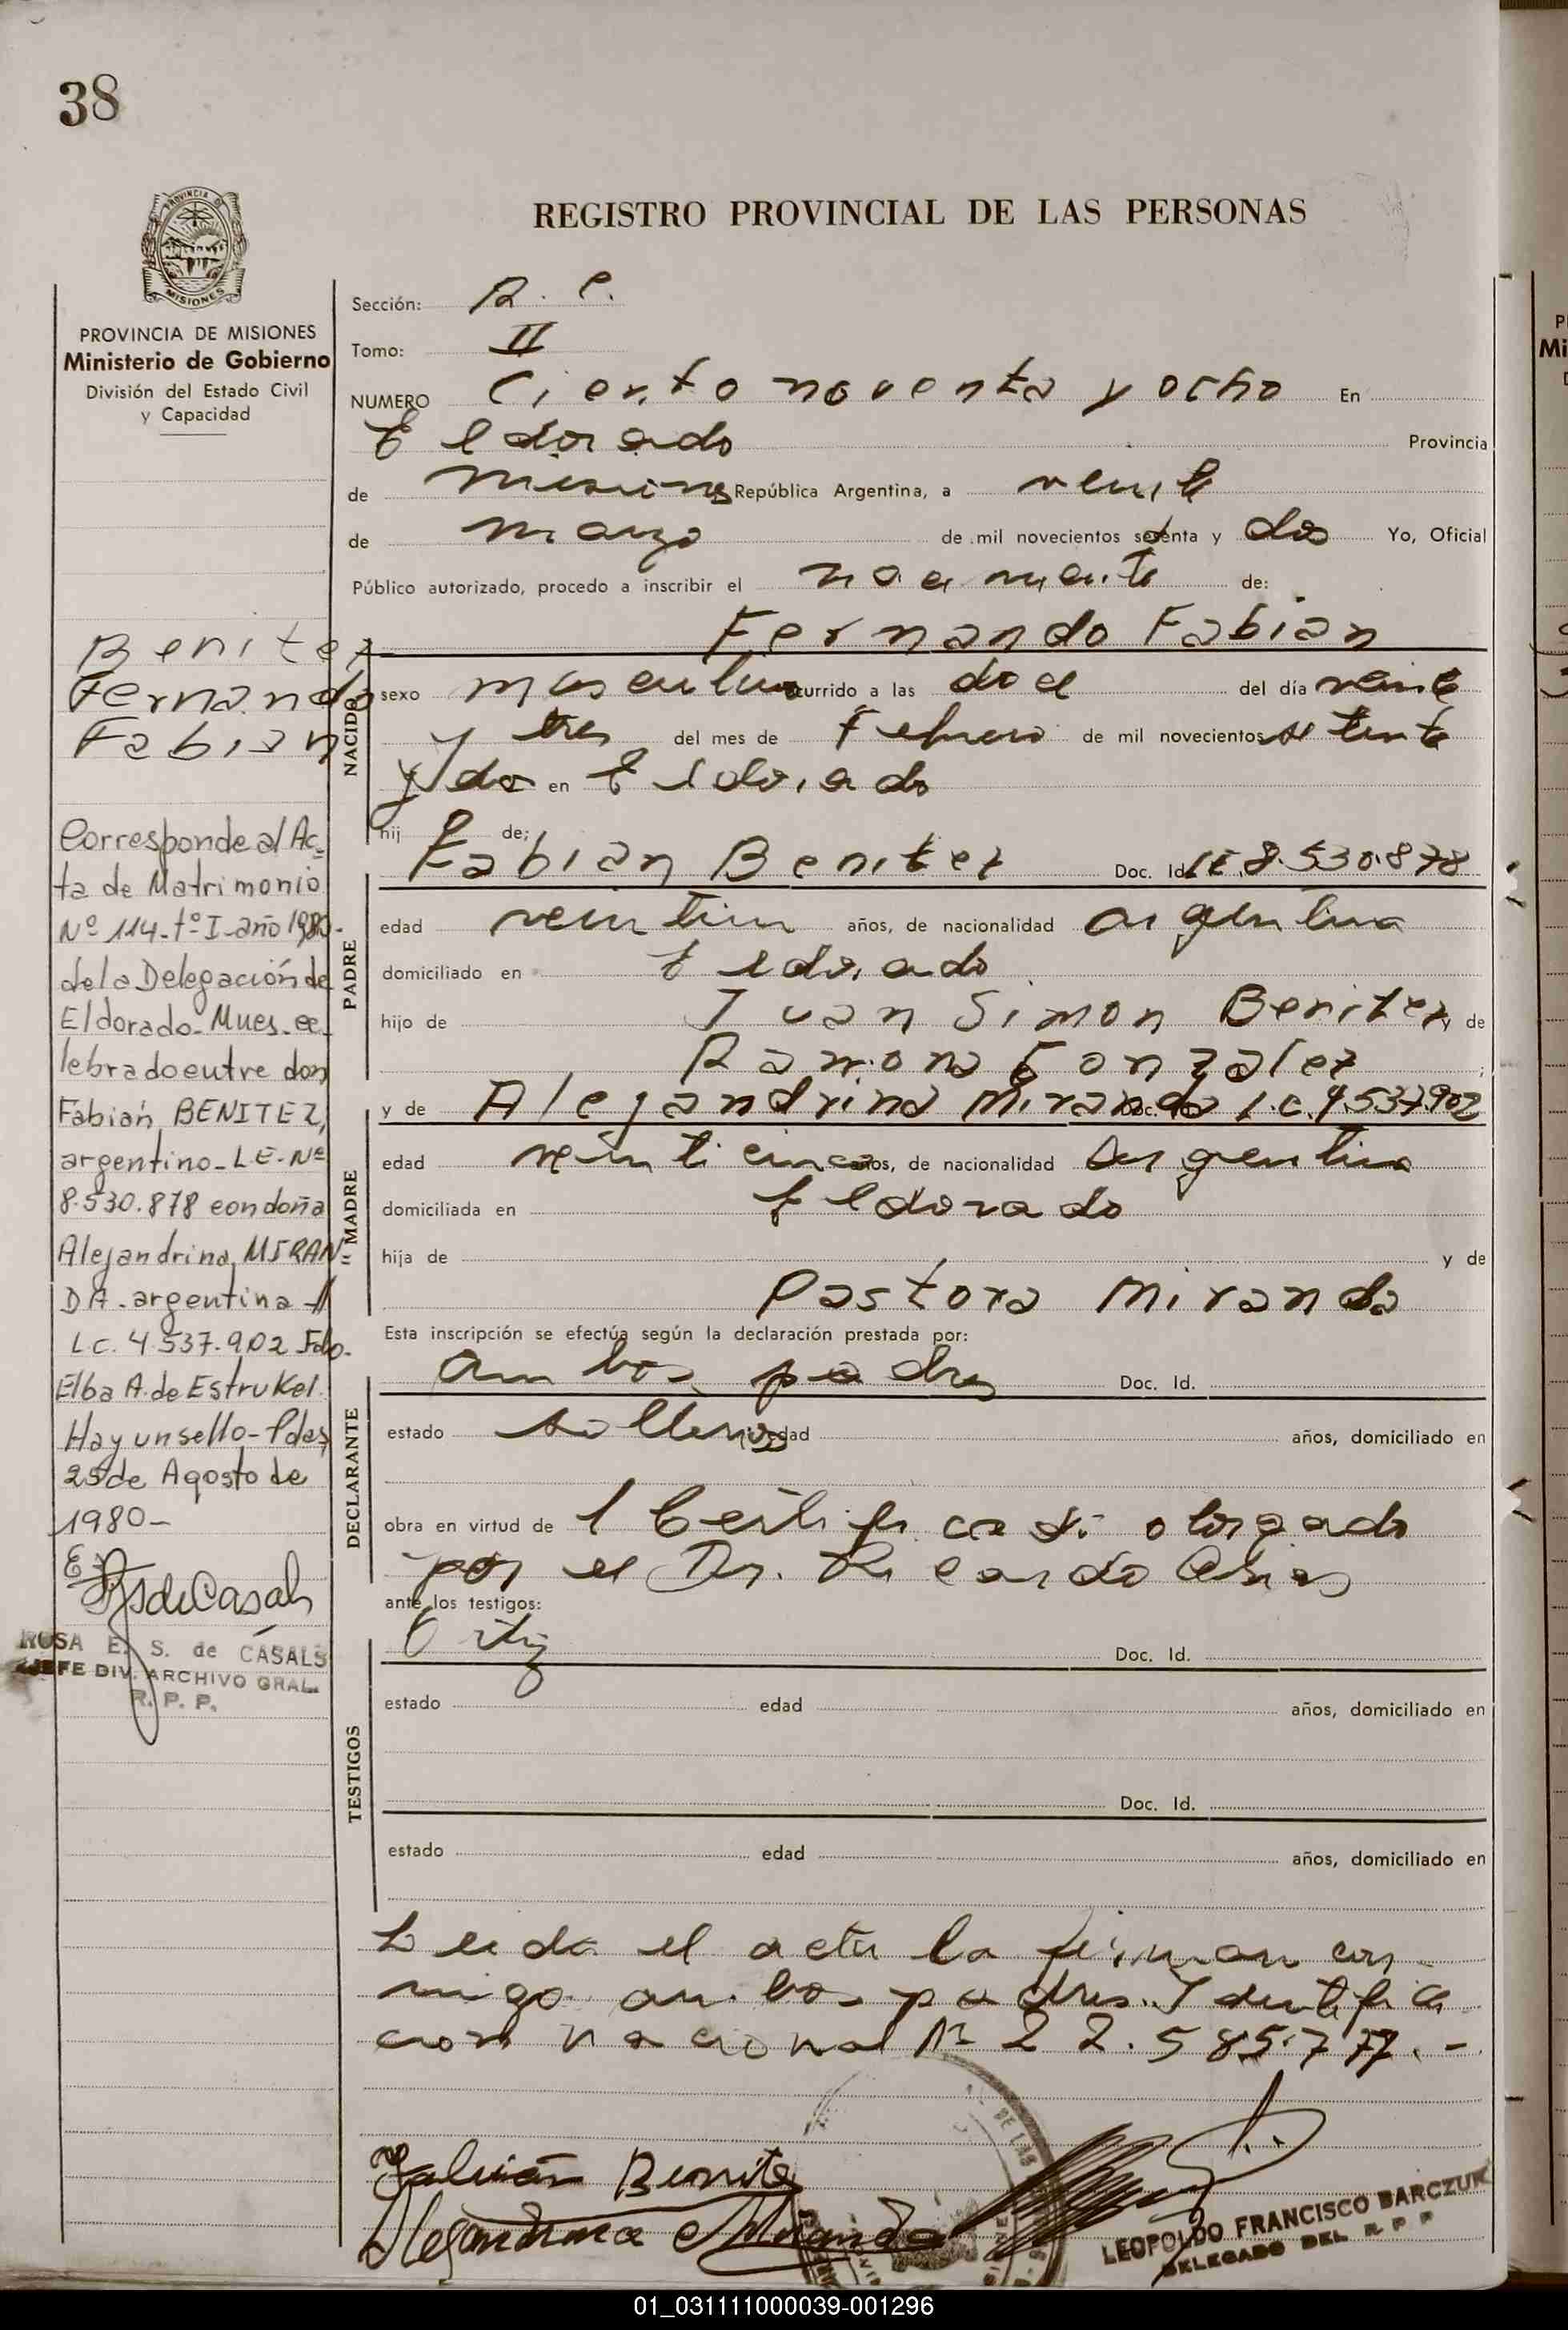 38
REGISTRO PROVINCIAL DE LAS PERSONAS
PROVINCIA DE MISIONES
MISIONES
PROVINCIA DE MISIONES
Ministerio de Gobierno
División del Estado Civil
y Capacidad
Benitez
Fernando
Fabian
Corresponde al Ac=
ta de Matrimonio
Nº 114-tº I-año 1980-
de la Delegación de
Eldorado-Mnes-ce-
lebrado entre don
Fabián BENITEZ,
argentino-L.E-Nº
8.530.878 con doña
Alejandrina MIRAN"
DA-argentina-//
L.C. 4.537.902 Fdo-
Elba A. de Estrukel.
Hay un sello-Pdas,
25 de Agosto de
1980-
ROSA E. S. de CASALS
JEFE DIV. ARCHIVO GRAL.
R. P. P.
Sección:
Tomo: II
NUMERO Ciento noventa y ocho En
Eldorado Provincia
de Misiones República Argentina, a veinte
de marzo de mil novecientos setenta y dos Yo, Oficial
Público autorizado, procedo a inscribir el nacimiento de:
Fernando Fabian
NACIDO
sexo masculino ocurrido a las doce del día veinte
y tres del mes de Febrero de mil novecientos setenta
y dos en Eldorado
hij o de;
PADRE
Fabian Benitez Doc. Id. L.E. 8.530.878
edad veintiun años, de nacionalidad argentina
domiciliado en Eldorado
hijo de Juan Simon Benitez y de
Ramona Gonzalez ;
MADRE
y de Alejandrina Miranda Doc. Id. L.C. 4.537.902
edad veinticinco años, de nacionalidad argentina
domiciliada en Eldorado
hija de y de
Pastora Miranda
Esta inscripción se efectúa según la declaración prestada por:
DECLARANTE
ambos padres Doc. Id.
estado solteros edad años, domiciliado en
obra en virtud de 1 Certificado otorgado
por el Dr. Ricardo
ante los testigos:
TESTIGOS
Ortiz Doc. Id.
estado edad años, domiciliado en
Doc. Id.
estado edad años, domiciliado en
Leida el acta la firman con-
migo ambos padres. Identifica
cion nacional Nº 22.585.777.-
Fabián Benitez
Alejandrina Miranda
LEOPOLDO FRANCISCO BARCZUK
DELEGADO DEL R P P
01_031111000039-001296